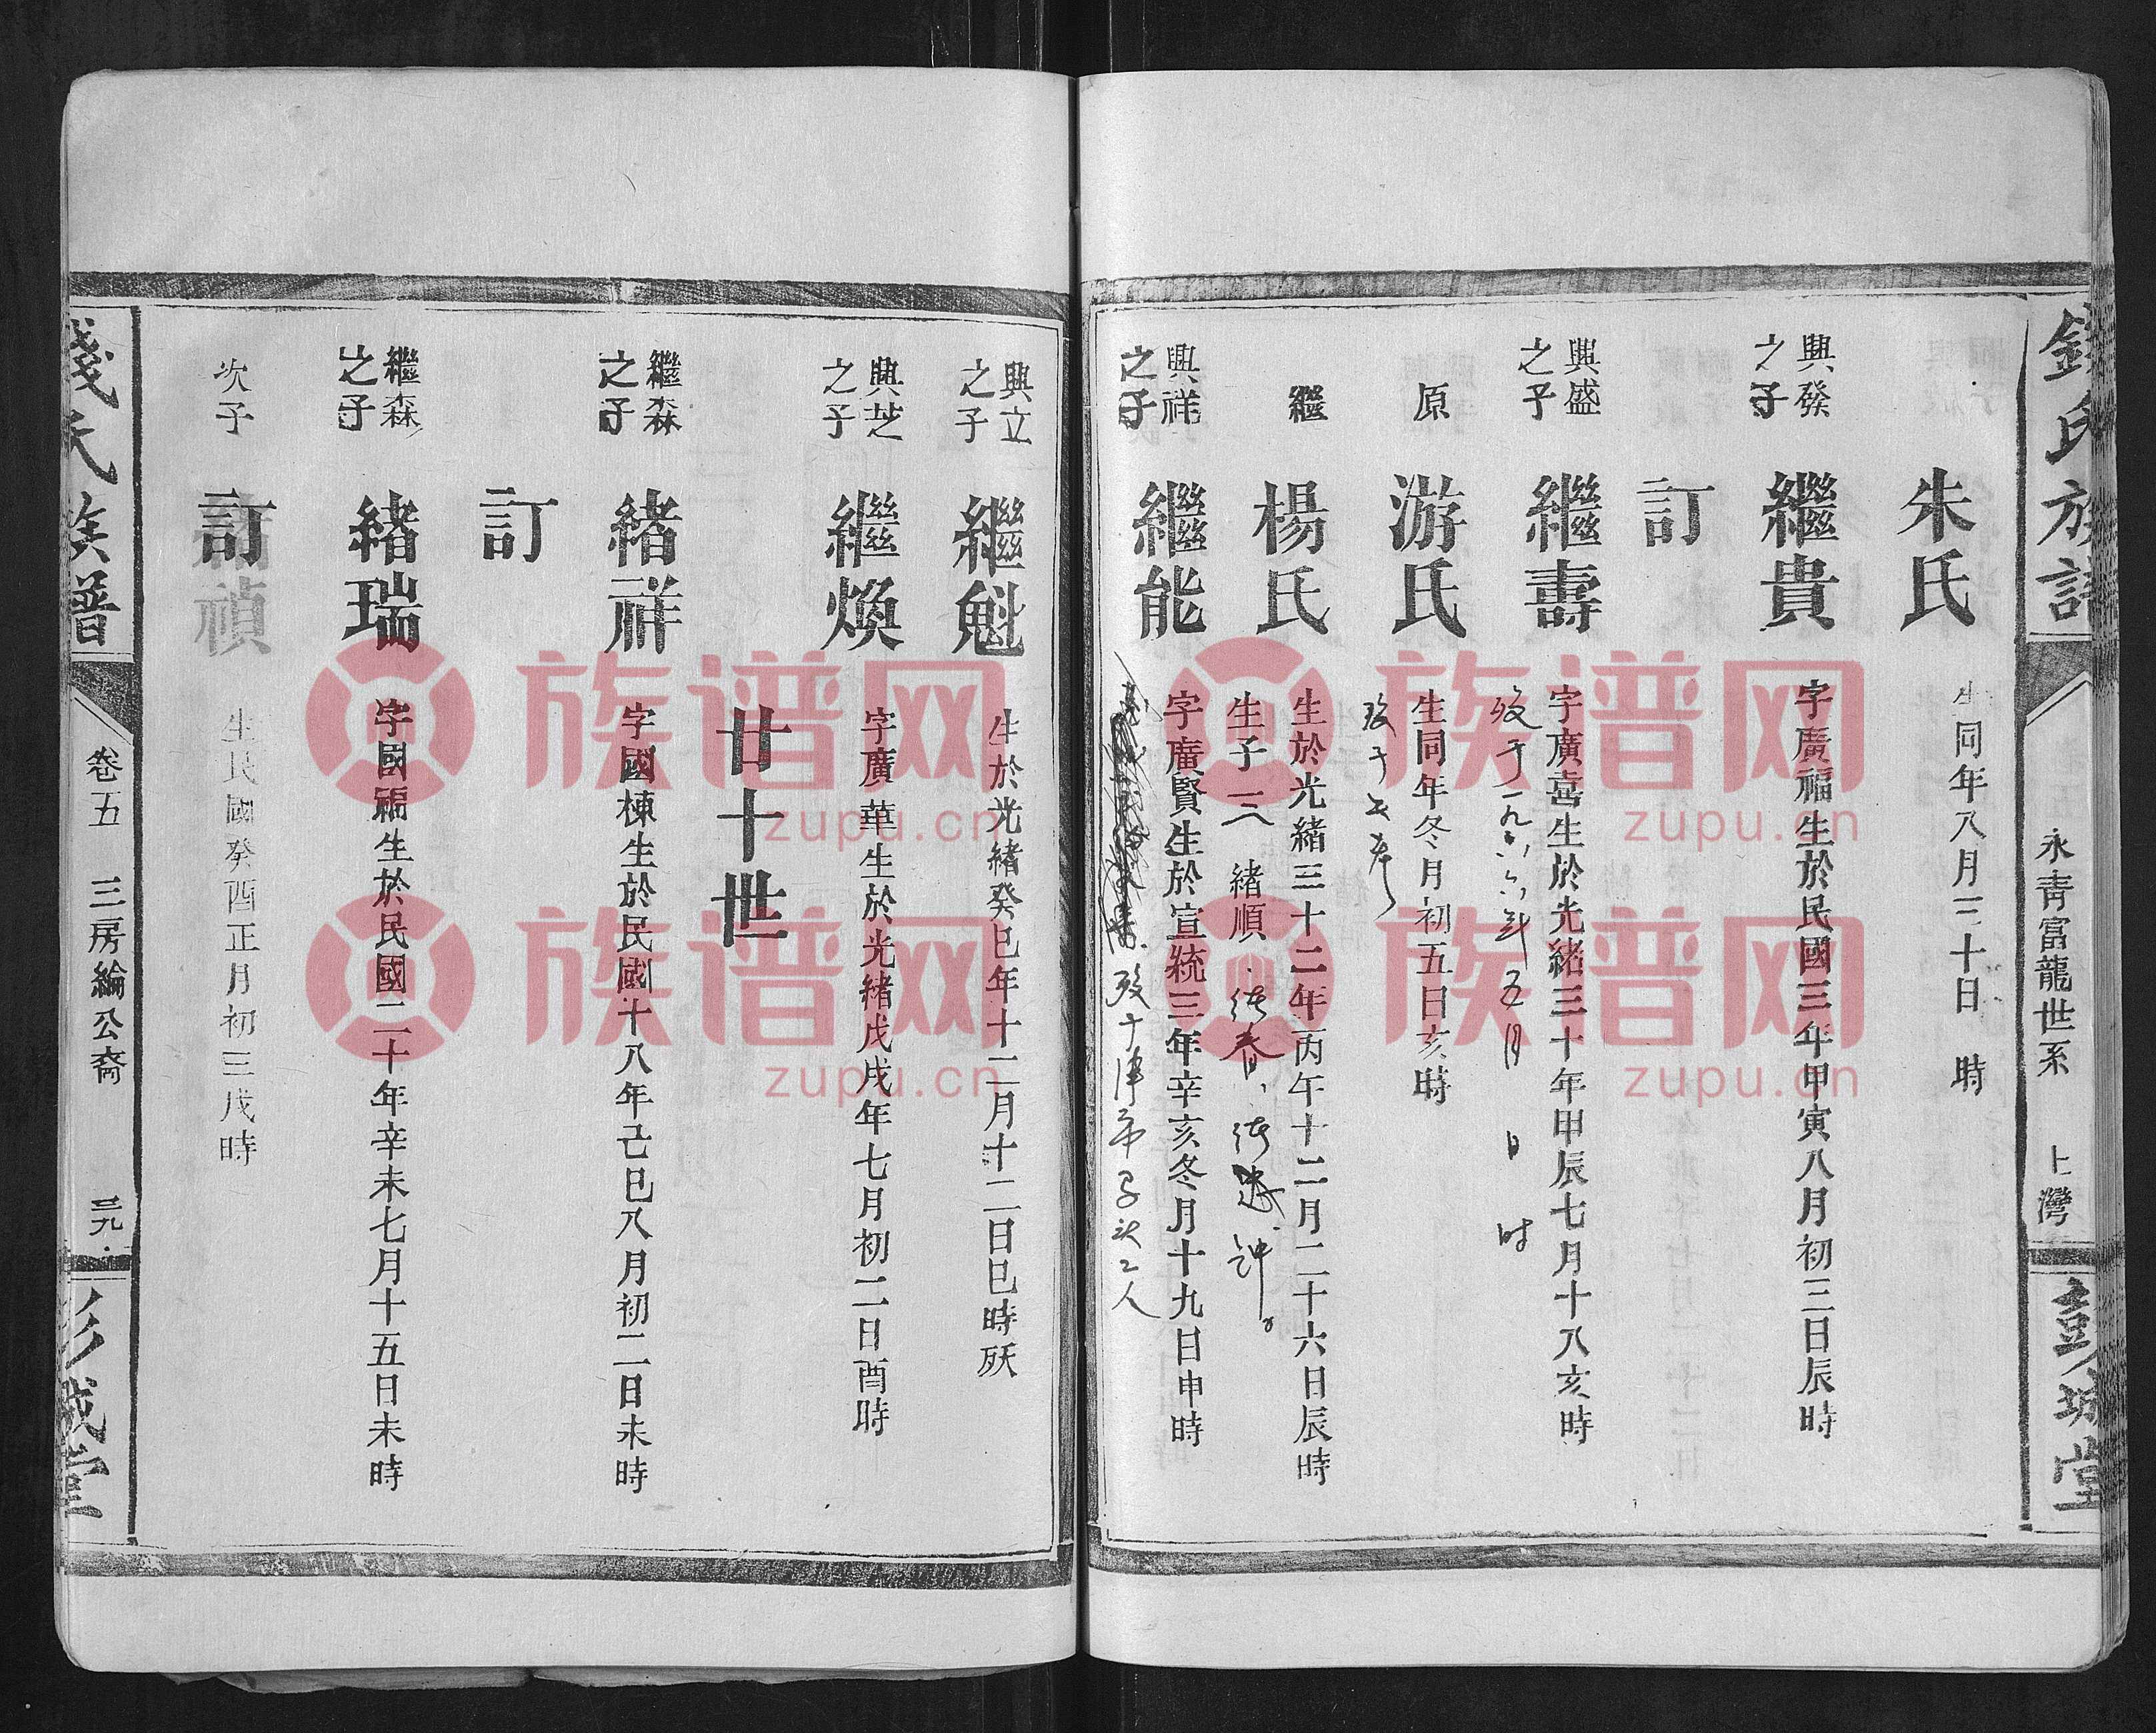 錢氏族譜
永青富龍世系 上灣
彭城堂
朱氏 生同年八月三十日 時
興發之子 繼貴 字廣福生於民國三年甲寅八月初三日辰時
訂
興盛之子 繼壽 字廣喜生於光緒三十年甲辰七月十八亥時
歿于一九六六年五月 日 时
原 游氏 生同年冬月初五日亥時
歿于
繼 楊氏 生於光緒三十二年丙午十二月二十六日辰時
生子三 緒順
興祥之子 繼能 字廣賢生於宣統三年辛亥冬月十九日申時
歿于津市
興立之子 繼魁 生於光緒癸巳年十二月十二日巳時殀
興芝之子 繼煥 字廣華生於光緒戊戌年七月初二日酉時
廿十世
繼森之子 緒祥 字國棟生於民國十八年己巳八月初二日未時
訂
繼森之子 緒瑞 字國福生於民國二十年辛未七月十五日未時
次子 訂 禎 生民國癸酉正月初三戌時
錢氏族譜
卷五 三房綸公裔 三九
彭城堂
族谱网
zupu.cn
族谱网
zupu.cn
族谱网
zupu.cn
族谱网
zupu.cn